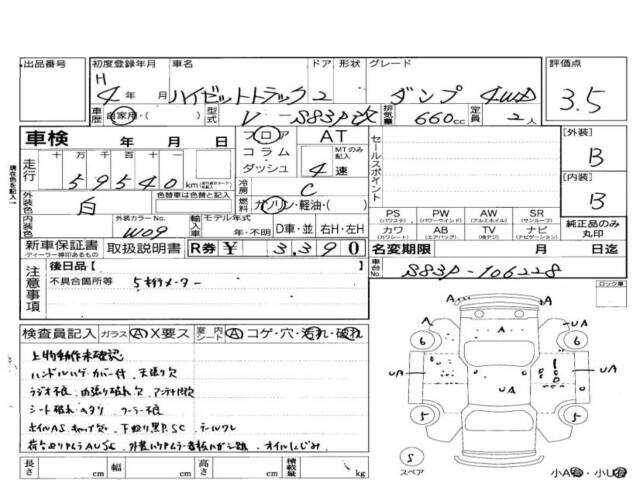 出品番号 初度登録年月 車名 ドア 形状 グレード 評価点
H 4年 月 ハイゼットトラック 2 ダンプ 4WD 3.5
車歴 自家用・( ) 型式 V-S83P改 排気量 660cc 定員 2人
車検 年 月 日 フロア AT
コラム・ダッシュ MTのみ記入 4速 セールスポイント [外装] B
走行 十万 万 千 百 十 km
59540
冷房 C [内装] B
外装色 白 色替車は色替と記入 燃料 ガソリン・軽油・( )
内装色 外装カラーNo. W09 輸入車 モデル年式 年・不明 D車・並 右H・左H
PS (パワステ) PW (パワーウインド) AW (アルミホイル) SR (サンルーフ)
カワ (カワシート) AB (エアバッグ) TV (純テレビ) ナビ (ナビゲーション)
純正品のみ丸印
新車保証書 取扱説明書 R券 ¥ 3,390 名変期限 月 日迄
ディーラー捺印あるもの
車台No. S83P-106228
注意事項 後日品 [ ]
不具合箇所等 5桁メーター
ロック車
検査員記入 ガラス A X要ス 室内シート A コゲ・穴・汚れ・破れ
上物動作未確認
ハンドルハゲ・カバー付 天張り欠
ラジオ不良 内張り破れ欠 アンテナ欠
シート破れ・ヘタリ クーラー不良
ホイルAS キャップ欠 下廻り黒P,SC
オイルにじみ
A A UA
6 6
A UA A UA
5 5
S スペア
長さ cm 幅 cm 高さ cm 積載量 kg
小A・小U